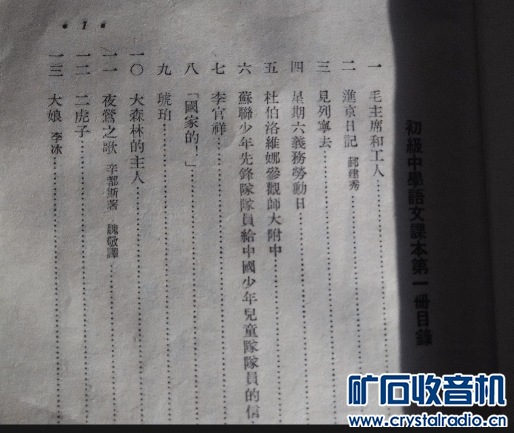 初級中學語文課本第一冊目錄
一 毛主席和工人
二 進京日記 郝建秀
三 見列寧去
四 星期六義務勞動日
五 杜伯洛維娜參觀師大附中
六 蘇聯少年先鋒隊隊員給中國少年兒童隊隊員的信
七 李官祥
八 「國家的！」
九 琥珀
一〇 大森林的主人
一一 夜鶯之歌 辛都斯著 魏敬譯
一二 二虎子
一三 大娘 李冰
• 1 •
矿石收音机
www.crystalradio.cn